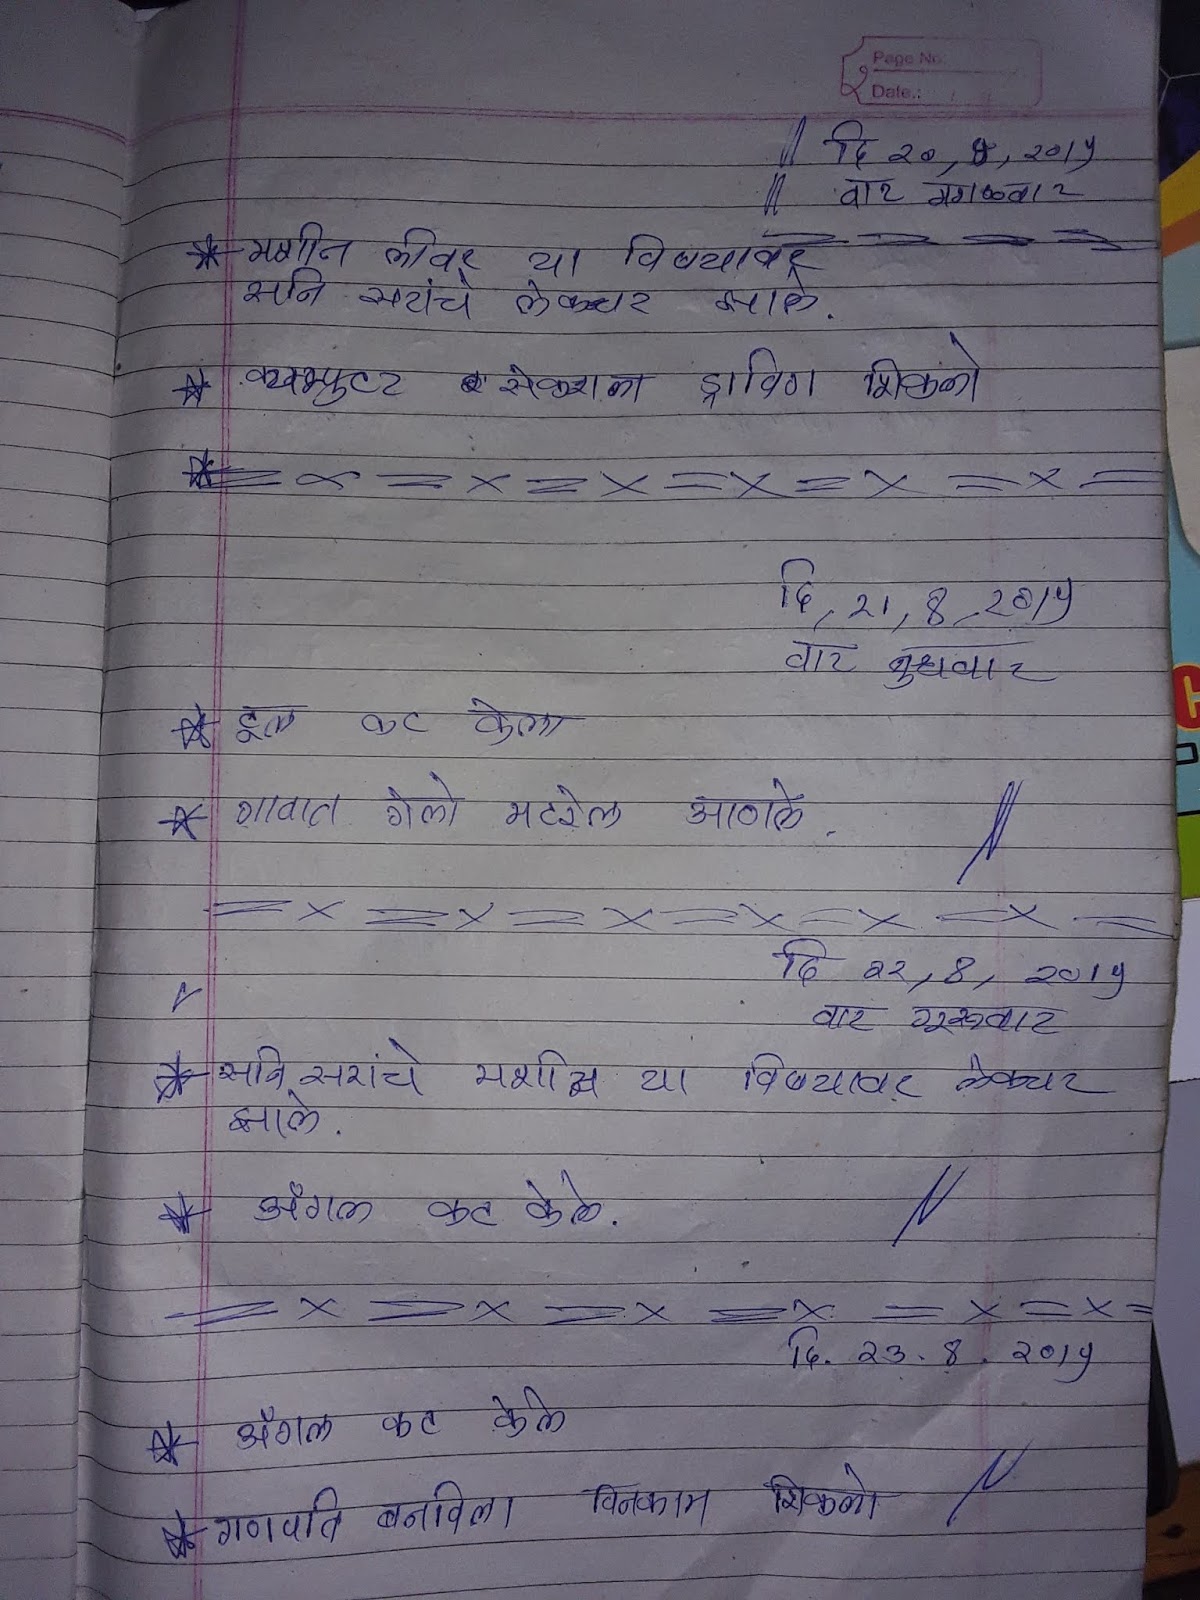 Page No.
Date.:
दि २०, 8, २०१५
वार मगळवार
मशीन लीवर या विषयावर
सनि सरांचे लेक्चर झाले.
कम्प्युटर सेक्शन ड्राविंग शिकलो
दि, २१, 8, २०१५
वार बुधवार
ड्रल कट केला
गावात गेलो मटरेल आणले.
दि २२, 8, २०१५
वार गुरूवार
सनि सरांचे मशीन या विषयावर लेक्चर
झाले.
अँगल कट केले.
दि. २३. 8. २०१५
अँगल कट केले
गणपति बनविला विनकाम शिकलो